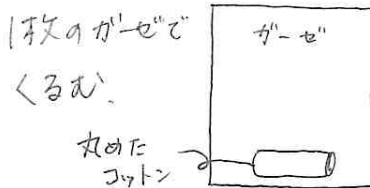 1枚のガーゼで
くるむ.
ガーゼ
丸めた
コットン